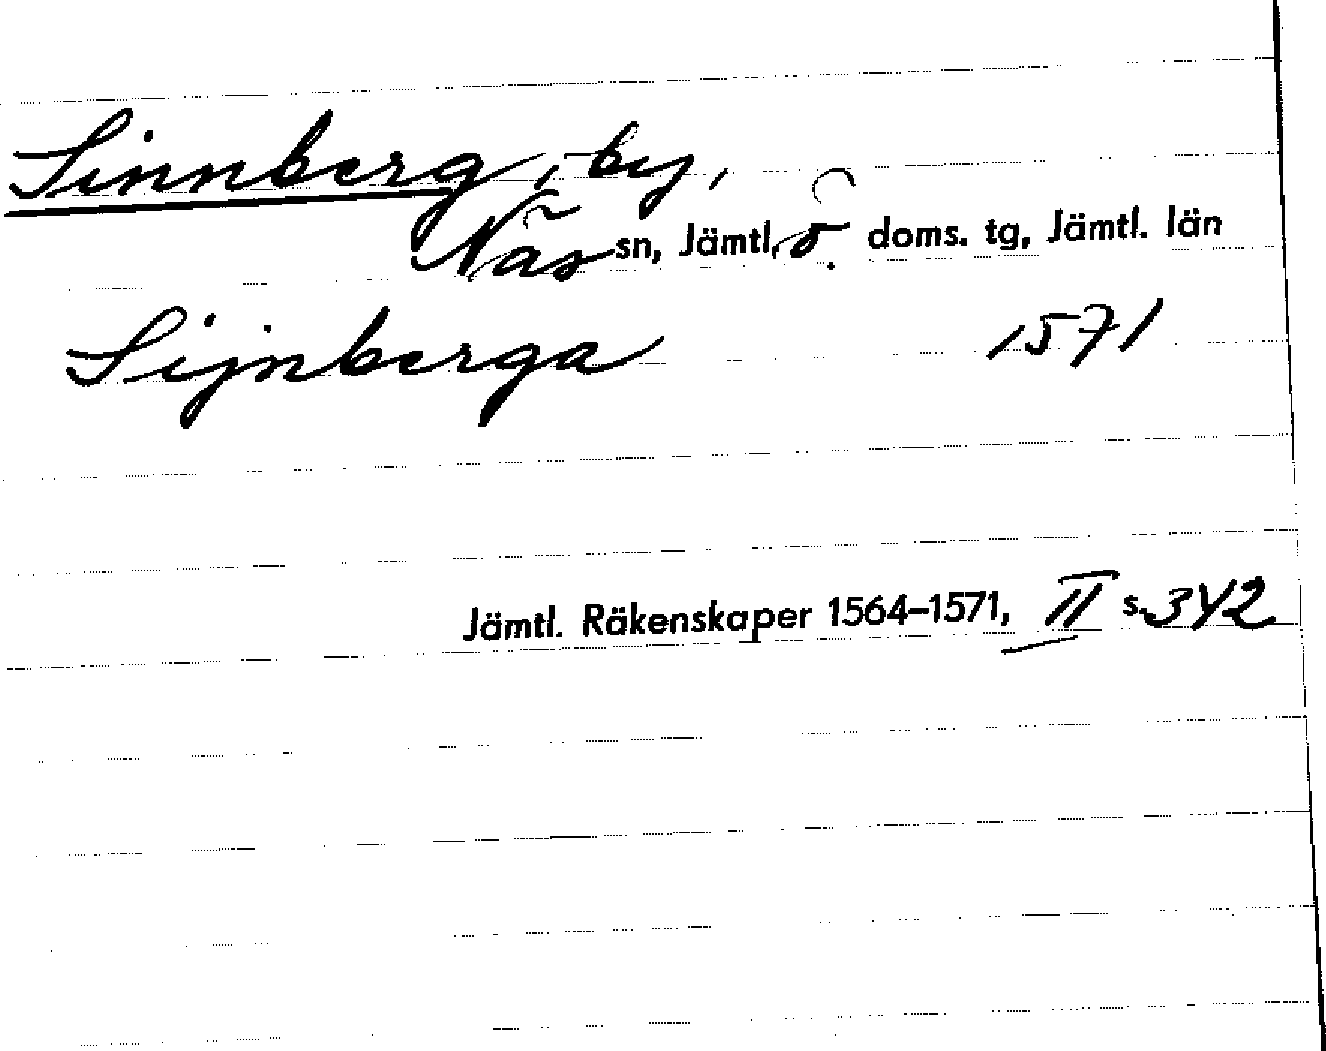 Sinnberg, by,
Näs sn, Jämtl. ö. doms. tg, Jämtl. län
Sijnberga 1571
Jämtl. Räkenskaper 1564–1571, II s. 342